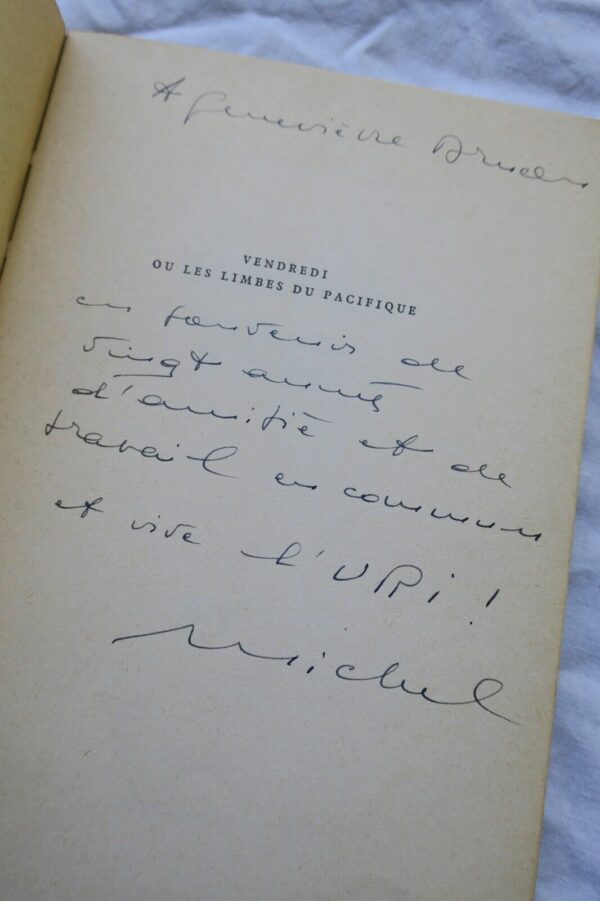 A Geneviève
VENDREDI
OU LES LIMBES DU PACIFIQUE
en souvenir de
vingt années
d'amitié et de
travail en commun
et vive l'URi !
Michel